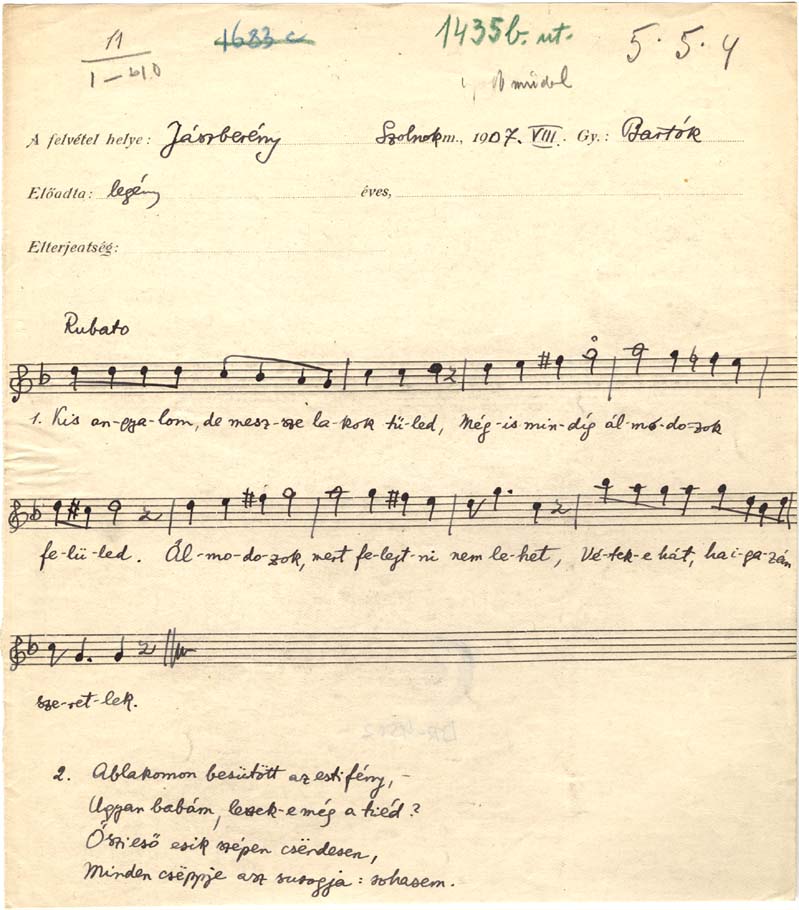 11
1683 c
1435b. ut.
5. 5. 4
I —
A felvétel helye: Jászberény Szolnok m., 1907. VIII. Gy.: Bartók
Előadta: legény éves,
Elterjedtség:
Rubato
1. Kis an-gya-lom, de mesz-sze la-kok tü-led, Még-is min-dig ál-mo-do-zok
fe-lü-led. Ál-mo-do-zok, mert fe-lejt-ni nem le-het, Vé-tek-e hát, ha i-ga-zán
sze-ret-lek.
2. Ablakomon besütött az esti fény, –
Ugyan babám, leszek-e még a tiéd?
Őszi eső esik szépen csëndesen,
Minden csëppje azt susogja: sohasem.